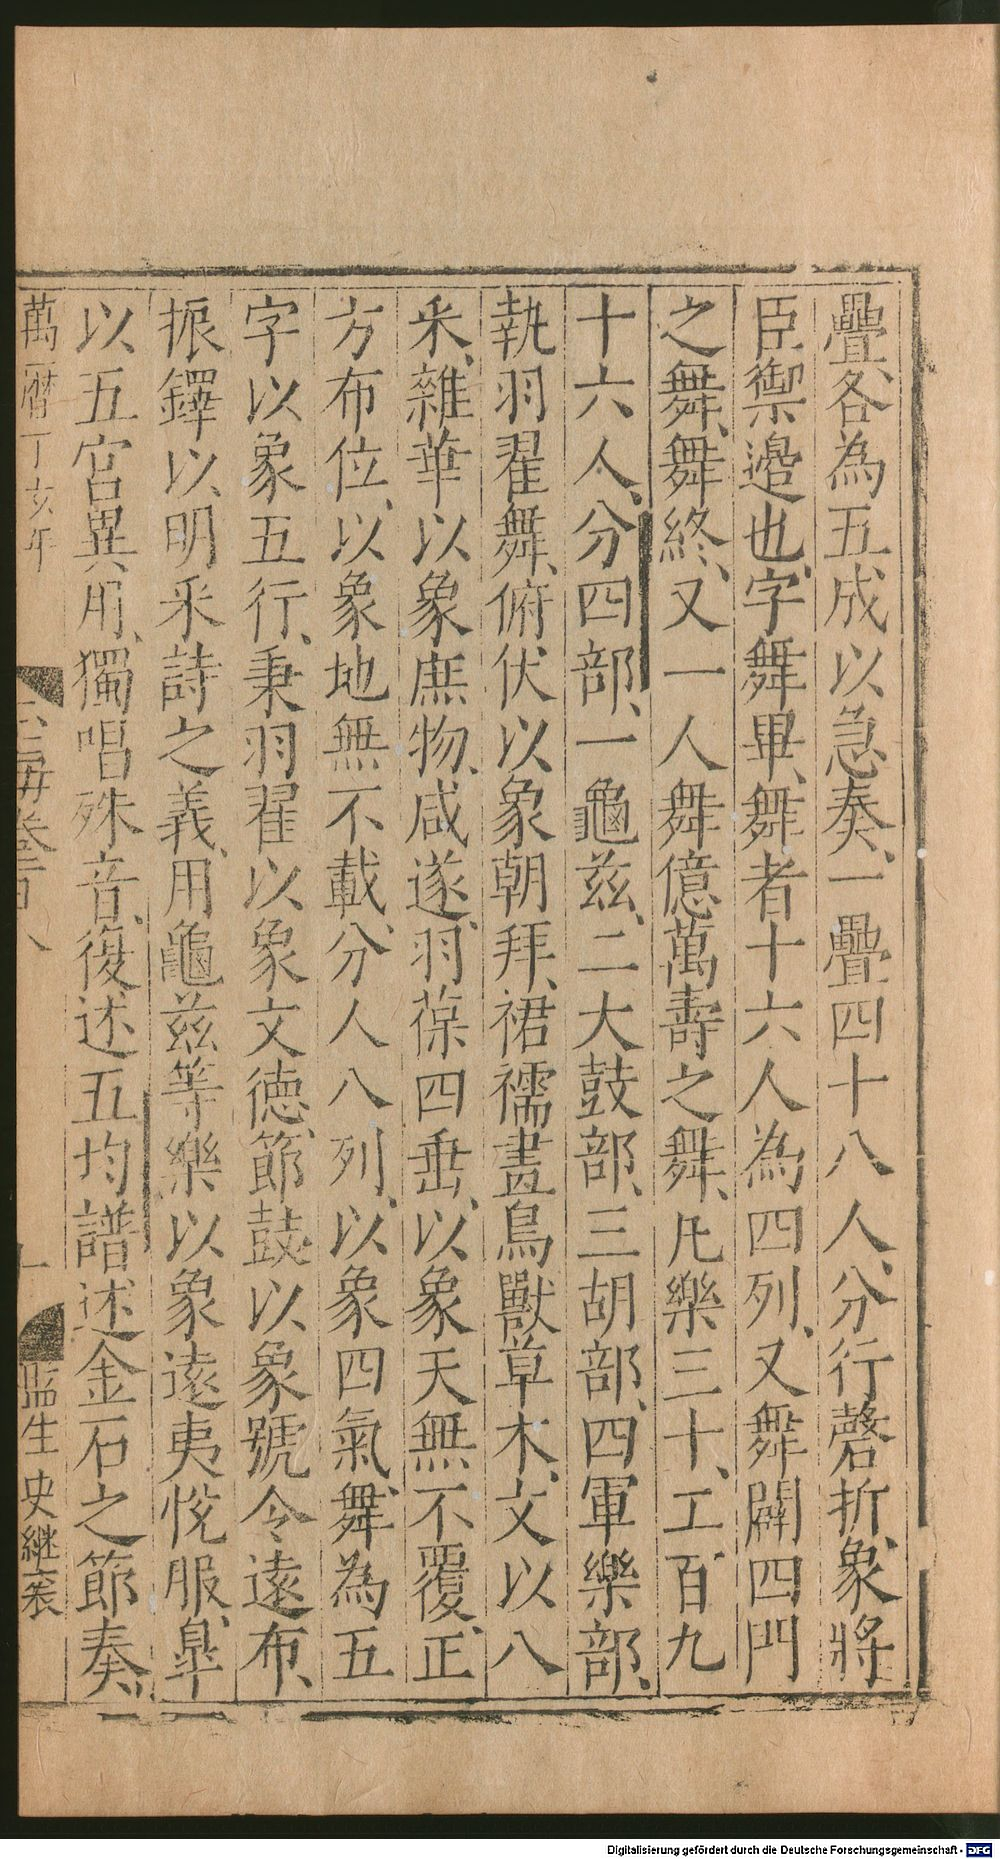 疊、各為五成以急奏、一疊四十八人、分行磬折、象將
臣禦邉也、字舞畢、舞者十六人為四列、又舞闢四門
之舞、舞終、又一人舞億萬壽之舞、凡樂三十、工百九
十六人、分四部、一龜茲、二大鼓部、三胡部、四軍樂部、
執羽翟舞、俯伏以象朝拜、裙襦畫鳥獸草木、文以八
釆、雜華以象庶物、咸遂、羽葆四垂、以象天無不覆、正
方布位、以象地無不載、分人八列、以象四氣、舞為五
字以象五行、秉羽翟以象文德、節鼓以象號令遠布、
振鐸以明釆詩之義、用龜茲等樂以象遠夷悅服、臯
以五宮異用、獨唱殊音、復述五均譜述金石之節奏、
萬曆丁亥年
卷二百八
監生史繼裘
Digitalisierung gefördert durch die Deutsche Forschungsgemeinschaft - DFG